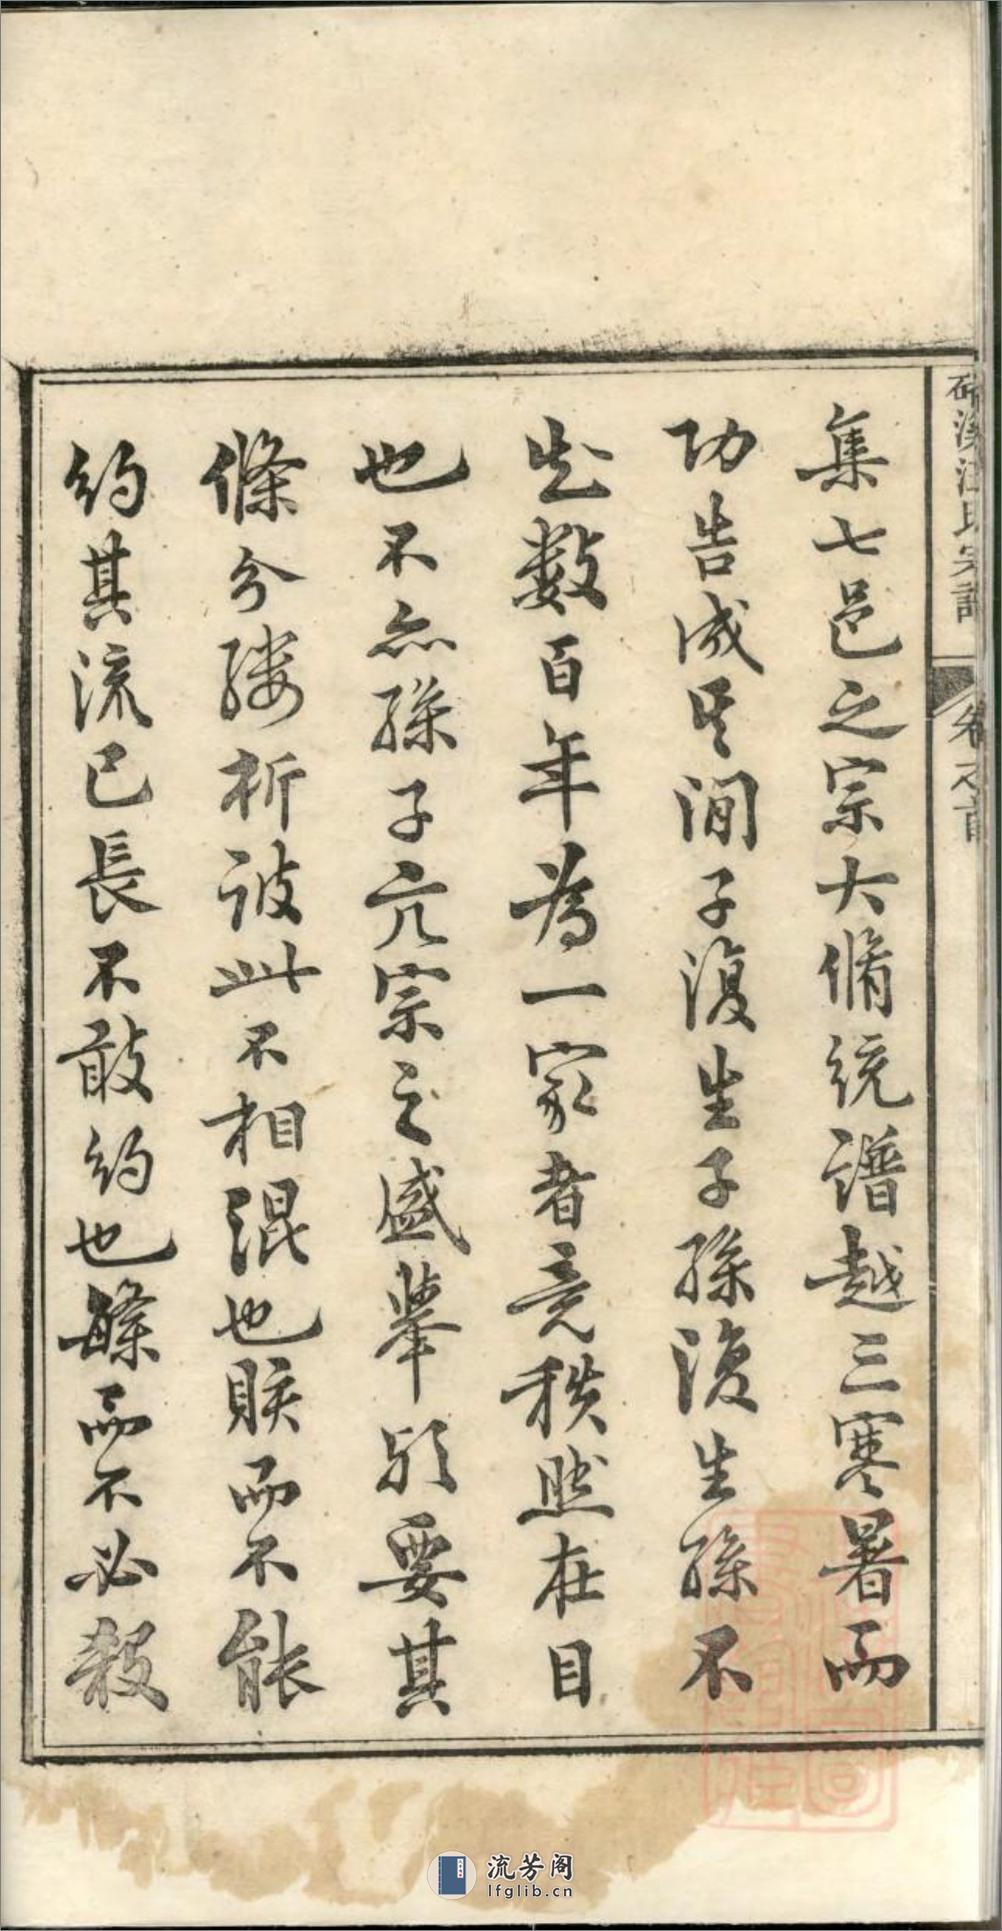 集七邑之宗大脩統譜越三寒暑而
功告成其間子復生子孫復生孫不
出數百年為一家者竟秩然在目
也不亦孫子亢宗之盛舉歟要其
條分縷析彼此不相混也賅而不能
約其流已長不敢約也緐而不必殺
溪汪氏宗譜
卷之首
流芳阁
lfglib.cn